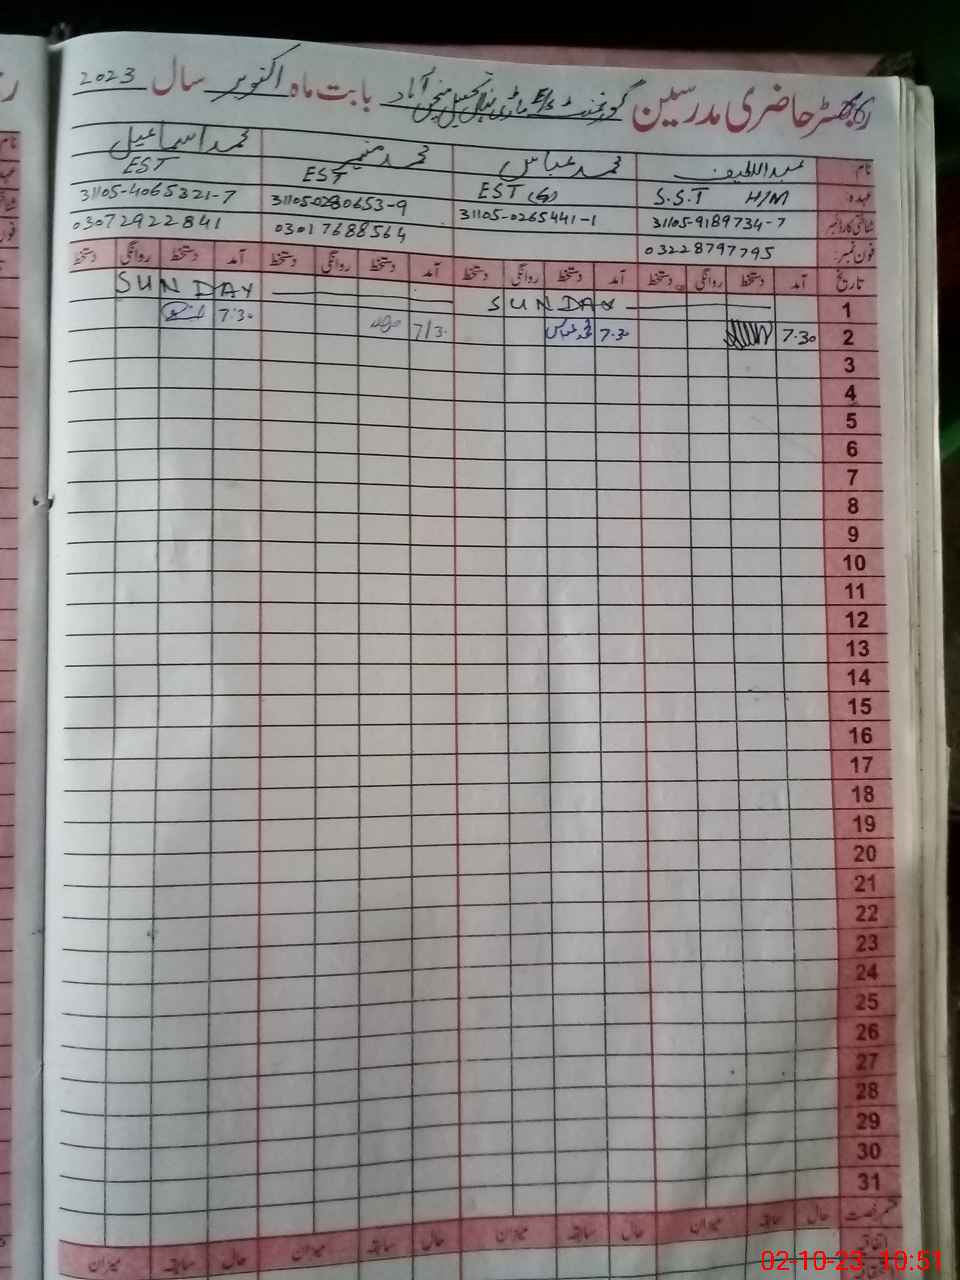 رجسٹر حاضری مدرسین گورنمنٹ E/S بابت ماہ اکتوبر سال 2023
نام عبداللطیف محمد عباس محمد منیر محمد اسماعیل
عہدہ S.S.T H/M EST EST EST
شناختی کارڈ نمبر 31105-9189734-7 31105-0265441-1 31105-0280653-9 31105-4065321-7
فون نمبر: 03228797795 03017688564 03072922841
تاریخ آمد دستخط روانگی دستخط آمد دستخط روانگی دستخط آمد دستخط روانگی دستخط آمد دستخط روانگی دستخط
1 SUNDAY SUNDAY
2 7.30 7.30 محمد عباس 7/30 7:30
3
4
5
6
7
8
9
10
11
12
13
14
15
16
17
18
19
20
21
22
23
24
25
26
27
28
29
30
31
حال سابقہ میزان حال سابقہ میزان حال سابقہ میزان حال سابقہ میزان
اتفاقیہ
02-10-23 10:51